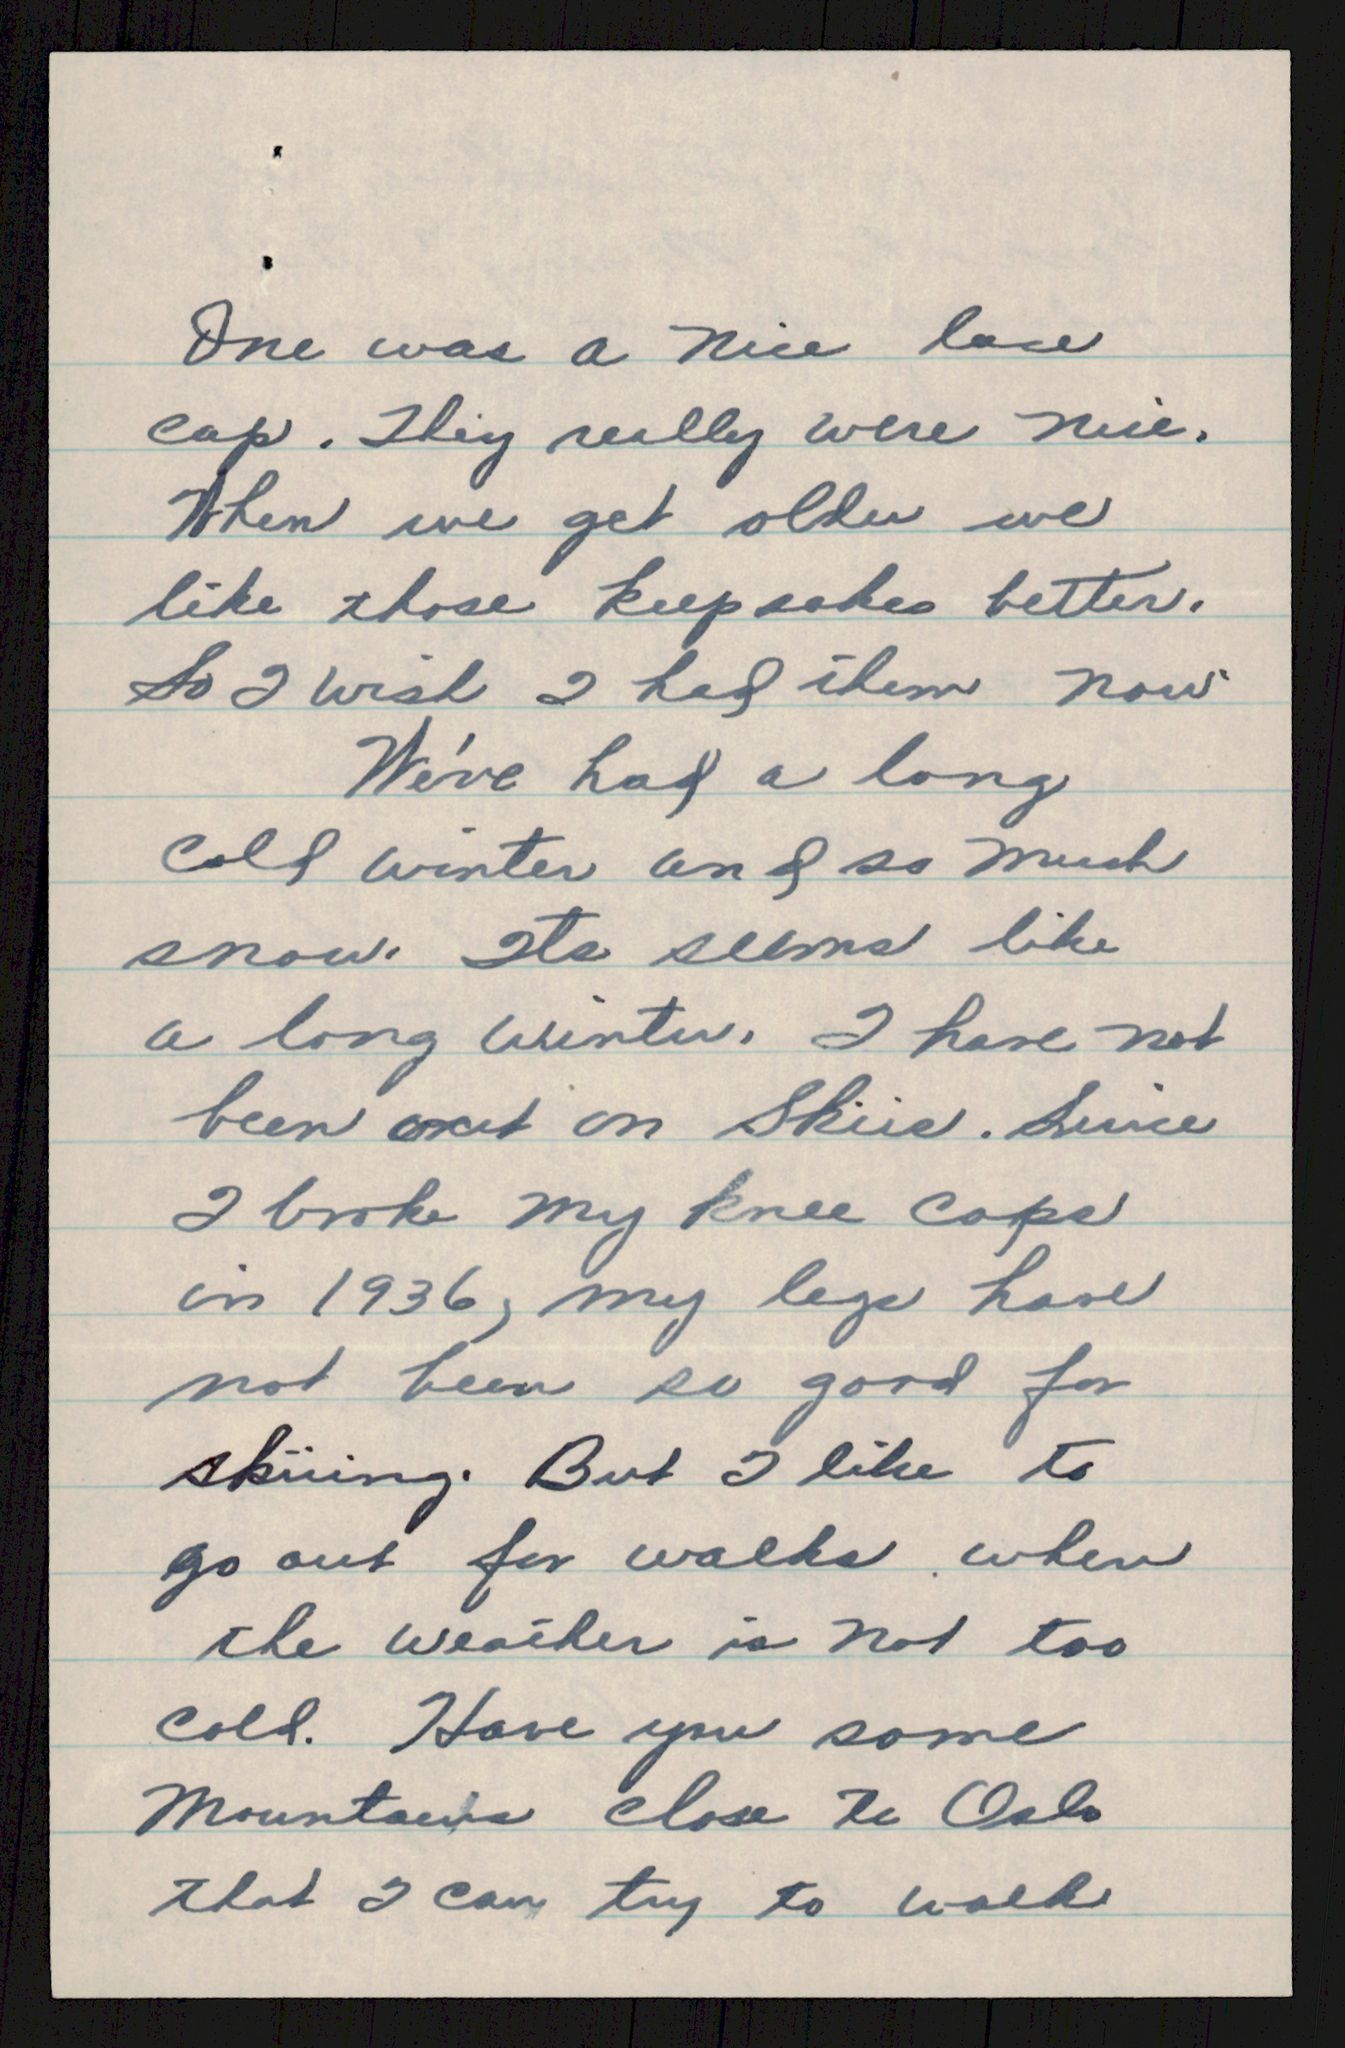 One was a nice lace
cap. They really were nice.
When we get older we
like those keepsakes better.
So I wish I had them now
We've had a long
cold winter and so much
snow. Its seems like
a long winter. I have not
been out on Skiis. Since
I broke my knee caps
in 1936, my legs have
not been so good for
skiiing. But I like to
go out for walks when
the weather is not too
cold. Have you some
Mountains close to Oslo
that I can try to walk